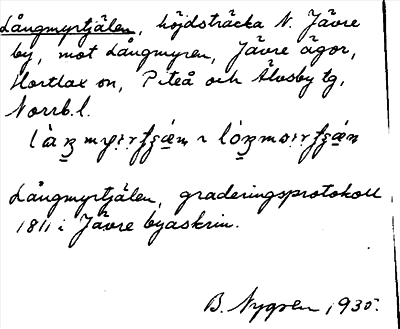 Långmyrtjälen, höjdsträcka N. Jävre
by, mot Långmyren, Jävre ägor,
Hortlax sn, Piteå och Älvsby tg,
Norrb. l.
Långmyrtjälen, graderingsprotokoll
1811 i Jävre byaskrin.
B. Nygren 1930.